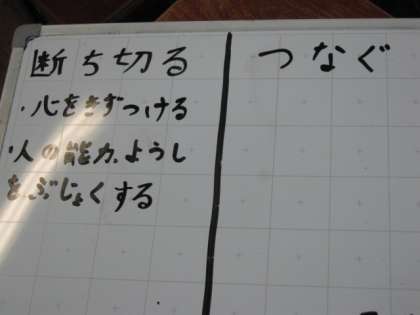 断ち切る
・心をきずつける
・人の能力、ようし
をぶじょくする
つなぐ